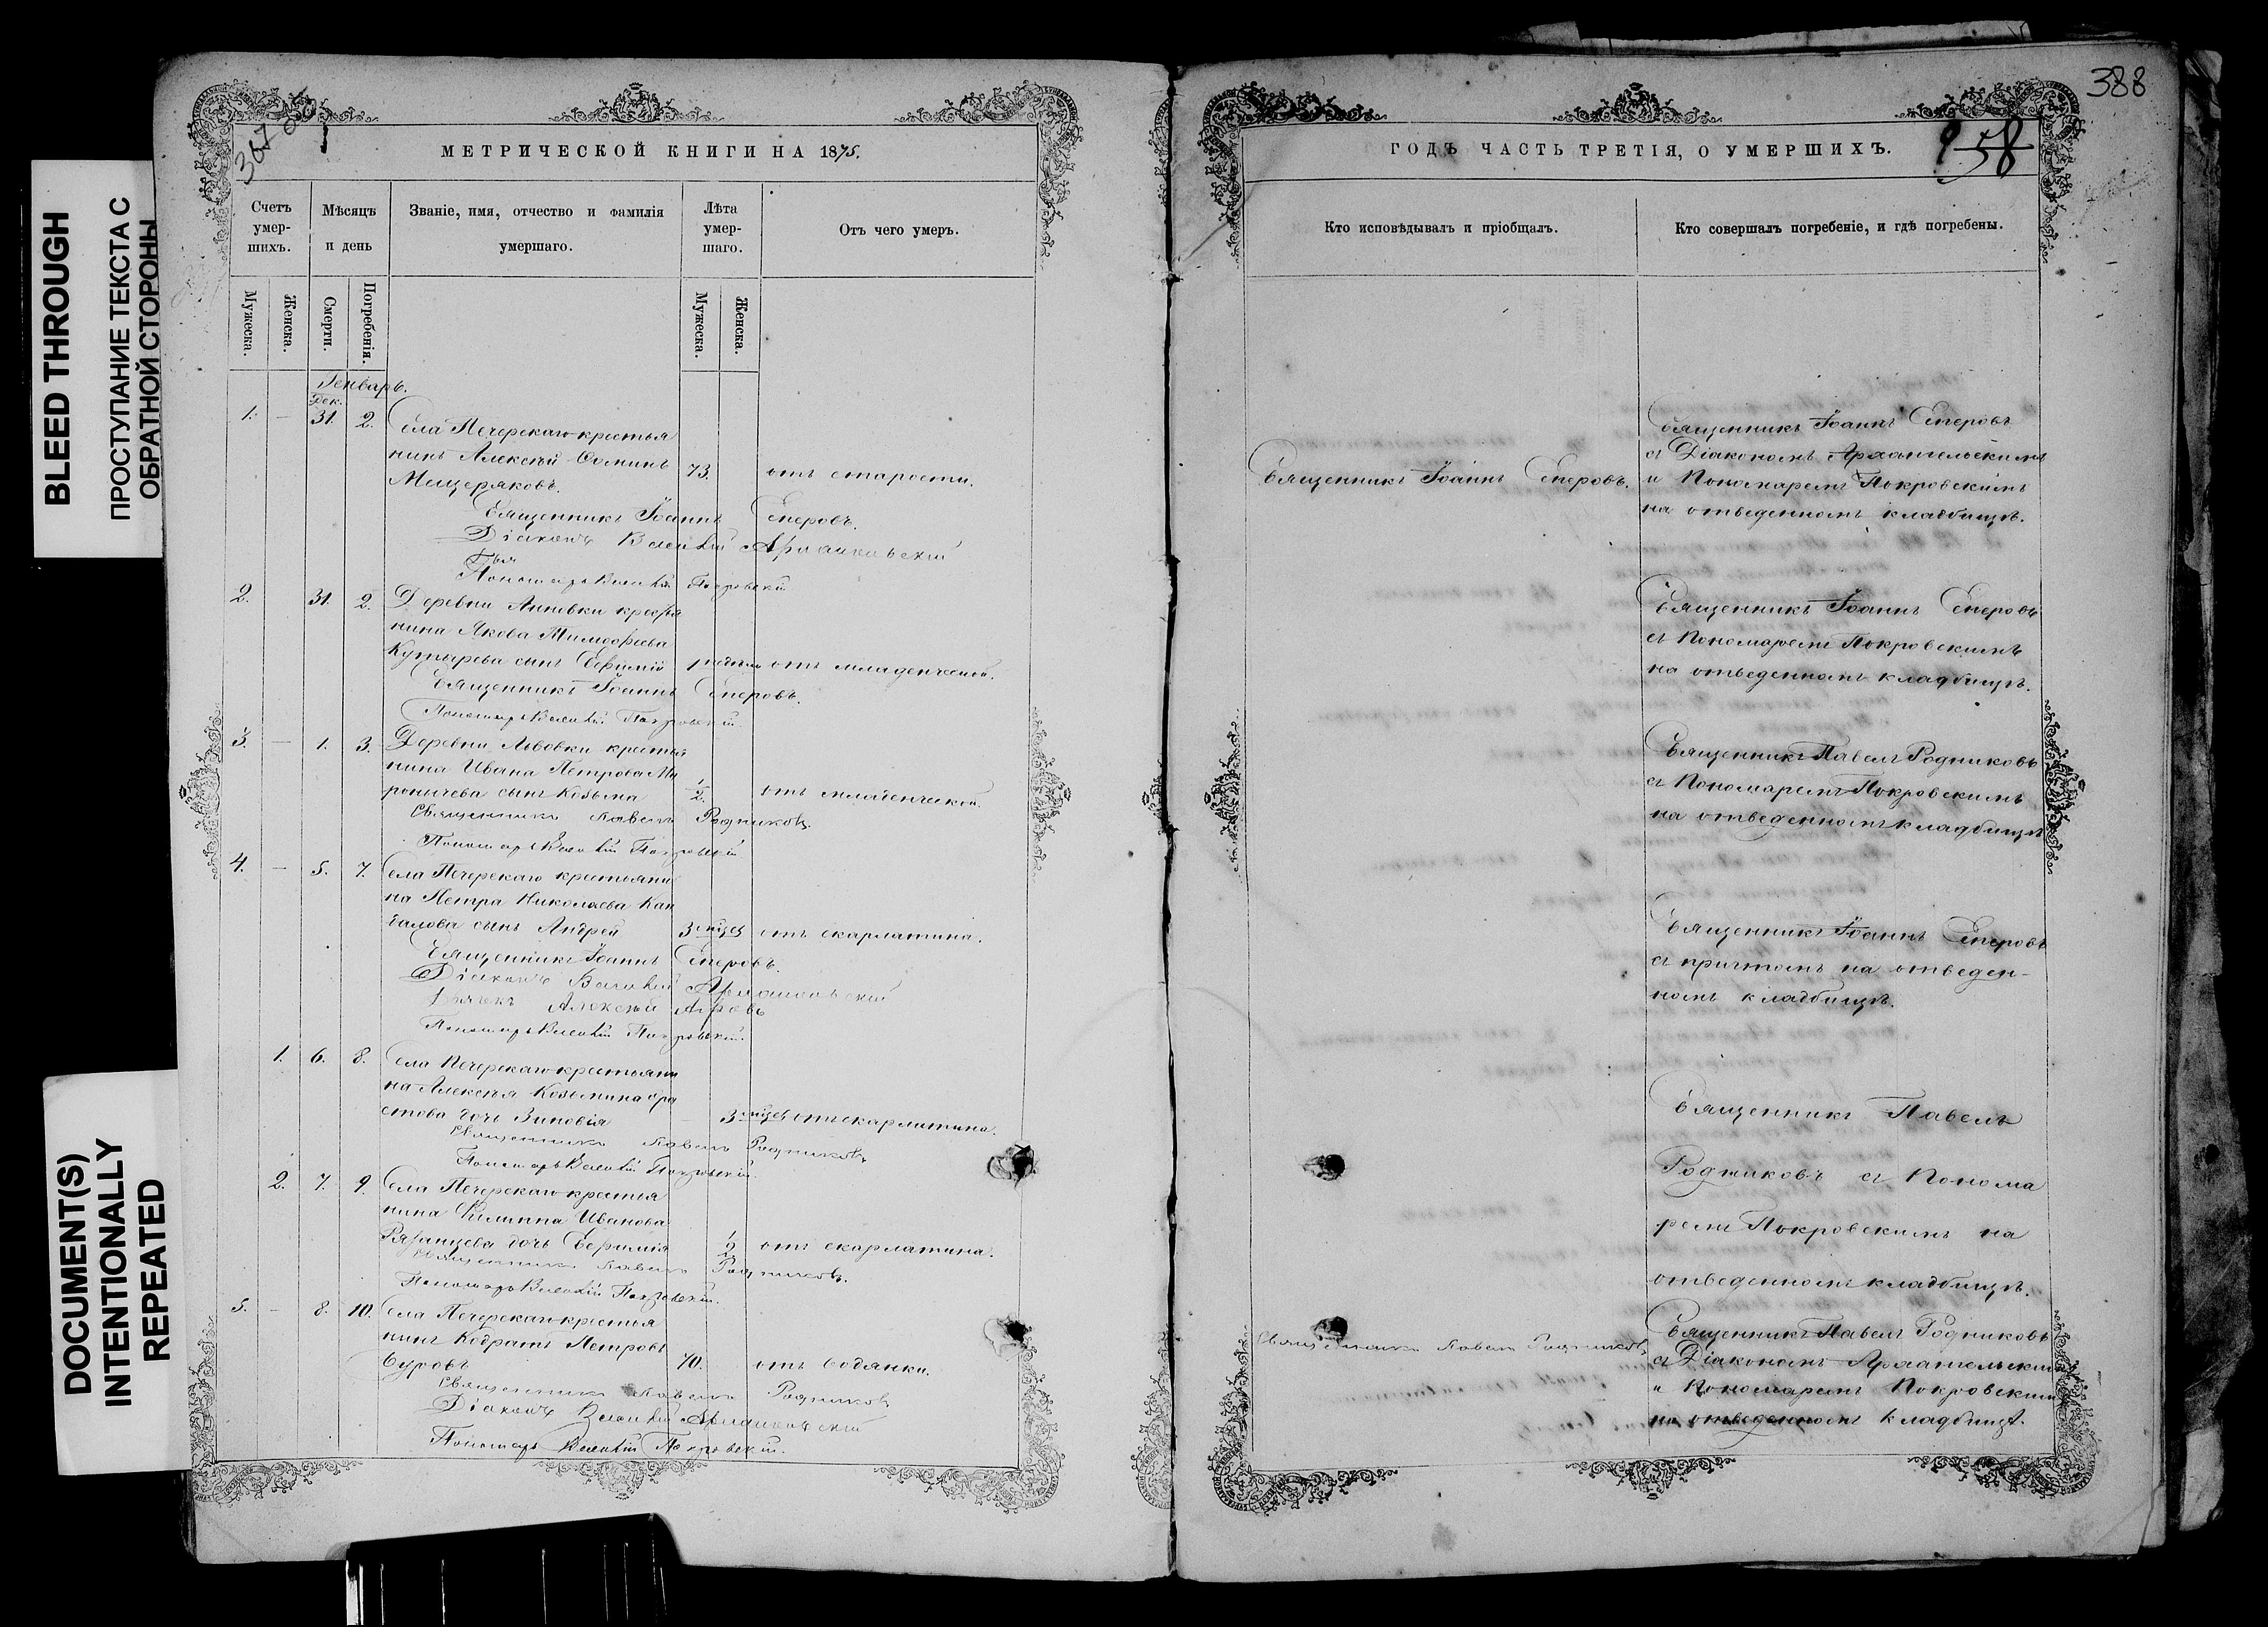 BLEED THROUGH
ПРОСТУПАНИЕ ТЕКСТА С
ОБРАТНОЙ СТОРОНЫ
DOCUMENT(S)
INTENTIONALLY
REPEATED
МЕТРИЧЕСКОЙ КНИГИ НА 1875.
Счетъ
умер-
шихъ.
Мѣсяцъ
и день
Званіе, имя, отчество и фамилія
умершаго.
Лѣта
умер-
шаго.
Отъ чего умеръ.
Мужеска.
Женска.
Смерти.
Погребенія.
Мужеска.
Женска.
Генварь.
Дек.
1. — 31. 2. Села Печерскаго крестья
нинъ Алексѣй Ѳоминъ 73. отъ старости.
Мещеряковъ.
Священникъ Іоаннъ Сперовъ.
Діаконъ Василій
Пономарь Василій Покровскій
2. 31. 2. Деревни Аннвки крестья
нина Якова Тимоѳеева
сынъ Ефимій отъ младенческой.
Священникъ Іоаннъ Сперовъ.
Пономарь Василій Покровскій.
3. — 1. 3. Деревни Львовки крестья
нина Ивана Петрова Ми
роничева сынъ Козьма 1/2. отъ младенческой.
Священникъ Павелъ Родниковъ.
Пономарь Василій Покровскій
4. — 5. 7. Села Печерскаго крестьяни
на Петра Николаева Кан
далова сынъ Андрей 3 мѣсц отъ скарлатина.
Священникъ Іоаннъ Сперовъ.
Діаконъ Василій
Алексѣй
Пономарь Василій Покровскій.
1. 6. 8. Села Печерскаго крестьяни
на Алексѣя Козьмина
дочь Зиновія 3 мѣсц отъ скарлатина.
Священникъ Павелъ Родниковъ
Пономарь Василій Покровскій.
2. 7. 9. Села Печерскаго крестья
нина Филиппа Иванова
Рязанцева дочь Евфимія 1/2 отъ скарлатина.
Священникъ Павелъ Родниковъ.
Пономарь Василій Покровскій.
5. — 8. 10. Села Печерскаго крестья
нинъ Кодратъ Петровъ
Буровъ 70. отъ водянки.
Священникъ Павелъ Родниковъ
Діаконъ Василій
Пономарь Василій Покровскій.
388
ГОДЪ ЧАСТЬ ТРЕТІЯ, О УМЕРШИХЪ.
958
Кто исповѣдывалъ и пріобщалъ.
Кто совершалъ погребеніе, и гдѣ погребены.
Священникъ Іоаннъ Сперовъ.
Священникъ Іоаннъ Сперовъ
съ Діакономъ Архангельскимъ
и Пономаремъ Покровскимъ
на отведенномъ кладбищѣ.
Священникъ Іоаннъ Сперовъ
съ Пономаремъ Покровскимъ
на отведенномъ кладбищѣ.
Священникъ Павелъ Родниковъ
съ Пономаремъ Покровскимъ
на отведенномъ кладбищѣ
Священникъ Іоаннъ Сперовъ
съ причтомъ на отведен-
номъ кладбищѣ.
Священникъ Павелъ
Родниковъ съ Понома
ремъ Покровскимъ на
отведенномъ кладбищѣ.
Священникъ Павелъ Родниковъ
Священникъ Павелъ Родниковъ
съ Діакономъ Архангельскимъ
и Пономаремъ Покровскимъ
на отведенномъ кладбищѣ.